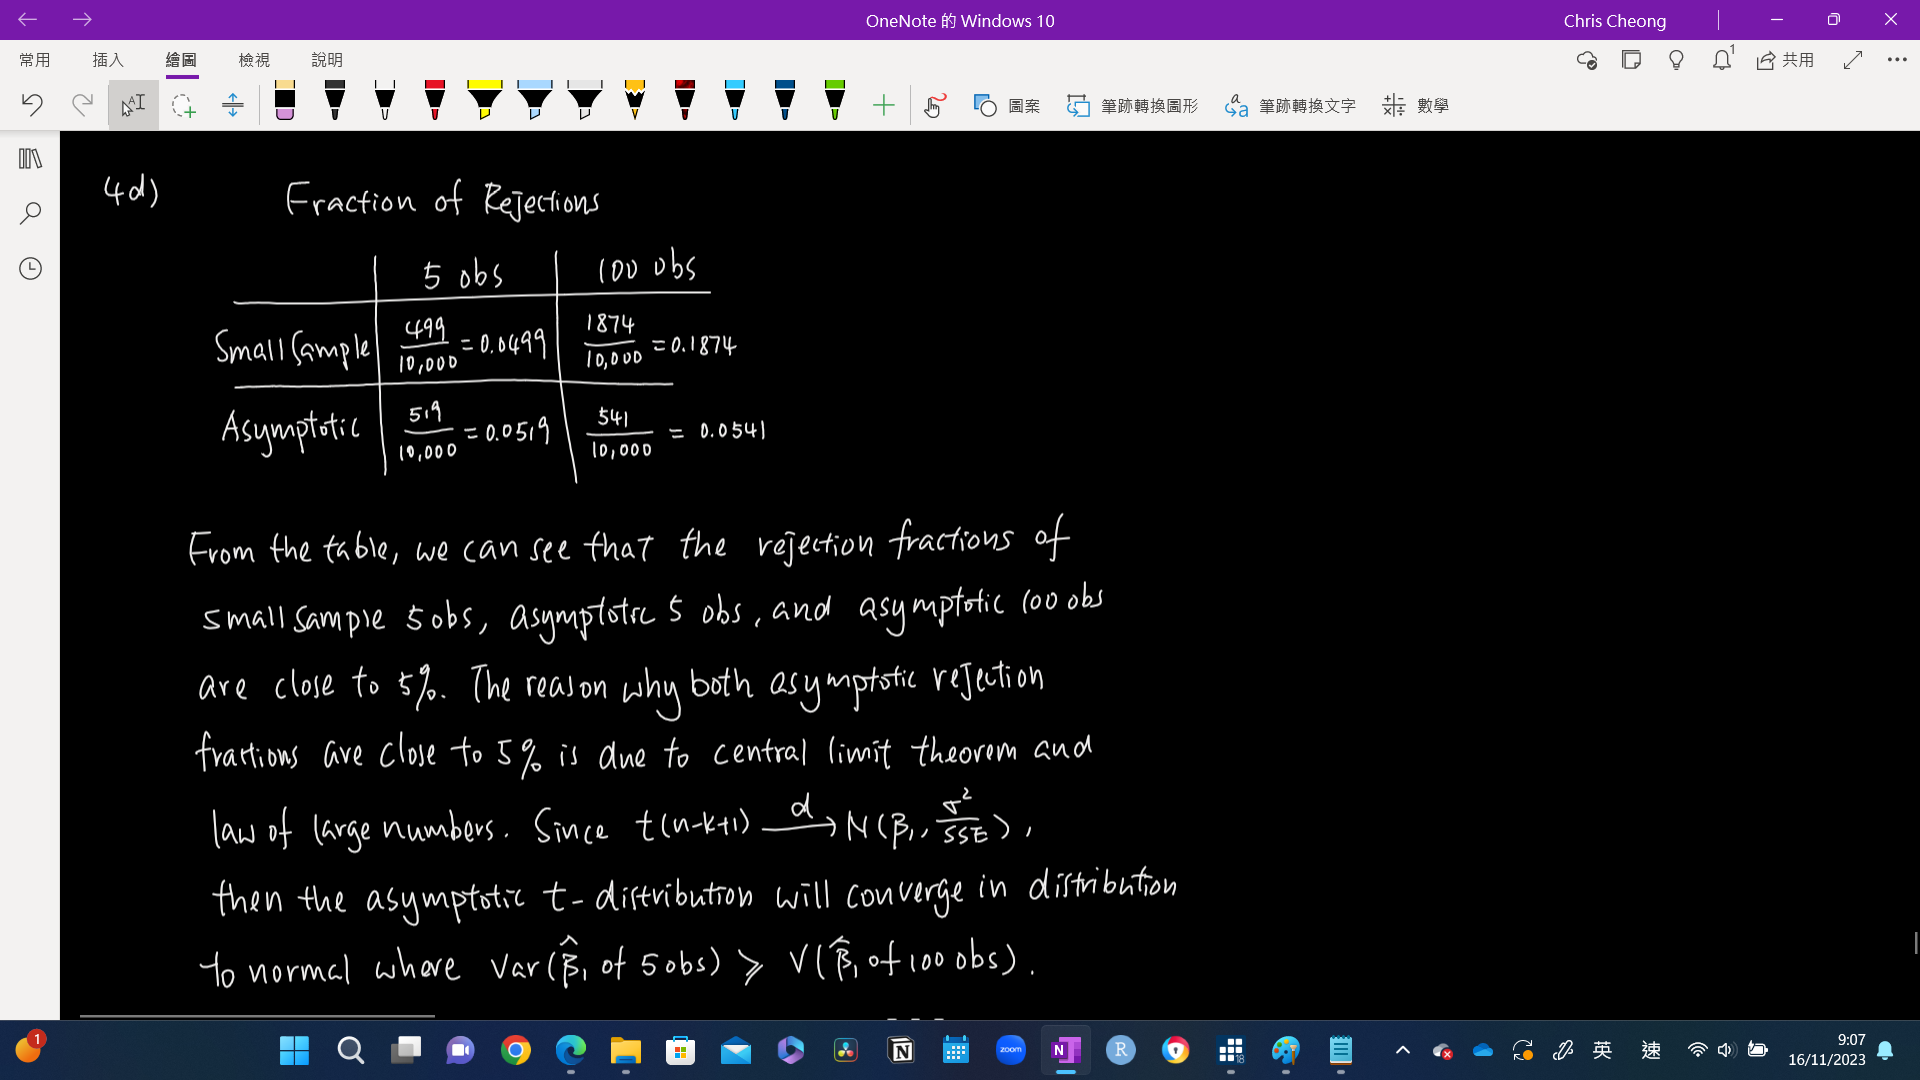 OneNote 的 Windows 10
Chris Cheong
常用 插入 繪圖 檢視 說明
1
共用
圖案 筆跡轉換圖形 筆跡轉換文字 數學
4d) Fraction of Rejections
5 obs 100 obs
Small Sample 499/10,000 = 0.0499 1874/10,000 = 0.1874
Asymptotic 519/10,000 = 0.0519 541/10,000 = 0.0541
From the table, we can see that the rejection fractions of
small sample 5 obs, asymptotic 5 obs, and asymptotic 100 obs
are close to 5%. The reason why both asymptotic rejection
fractions are close to 5% is due to central limit theorem and
law of large numbers. Since t(n-k+1) →d N(β₁, σ²/SSE),
then the asymptotic t-distribution will converge in distribution
to normal where Var(β̂₁ of 5 obs) ≥ V(β̂₁ of 100 obs).
1
zoom
N
R
18
英
速
9:07
16/11/2023